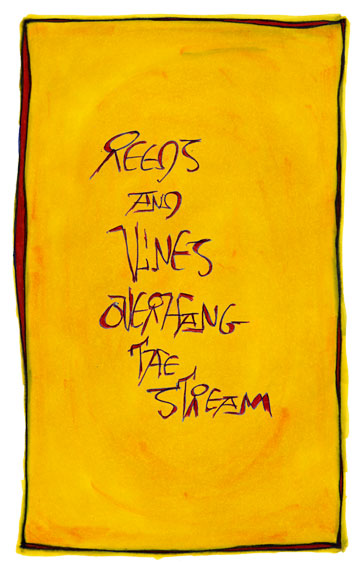 REEDS
AND
VINES
OVERHANG
THE
STREAM